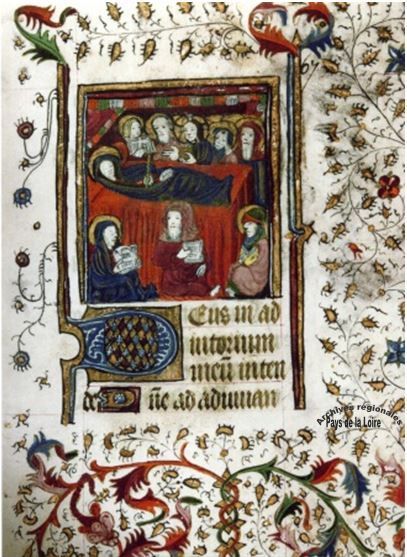 Deus in ad
iutorium
meū inten
de Dñe ad adiuuan
Archives régionales
Pays de la Loire